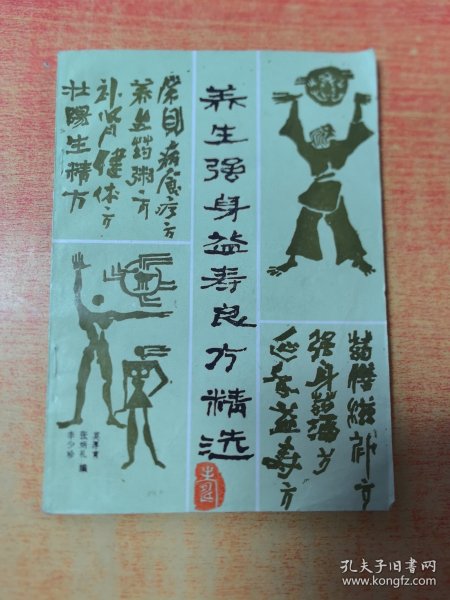 养生强身益寿良方精选
常见病食疗方
养生药粥方
补肾健体方
壮阳生精方
药膳滋补方
强身药酒方
延年益寿方
张炳礼 编
孔夫子旧书网
www.kongfz.com